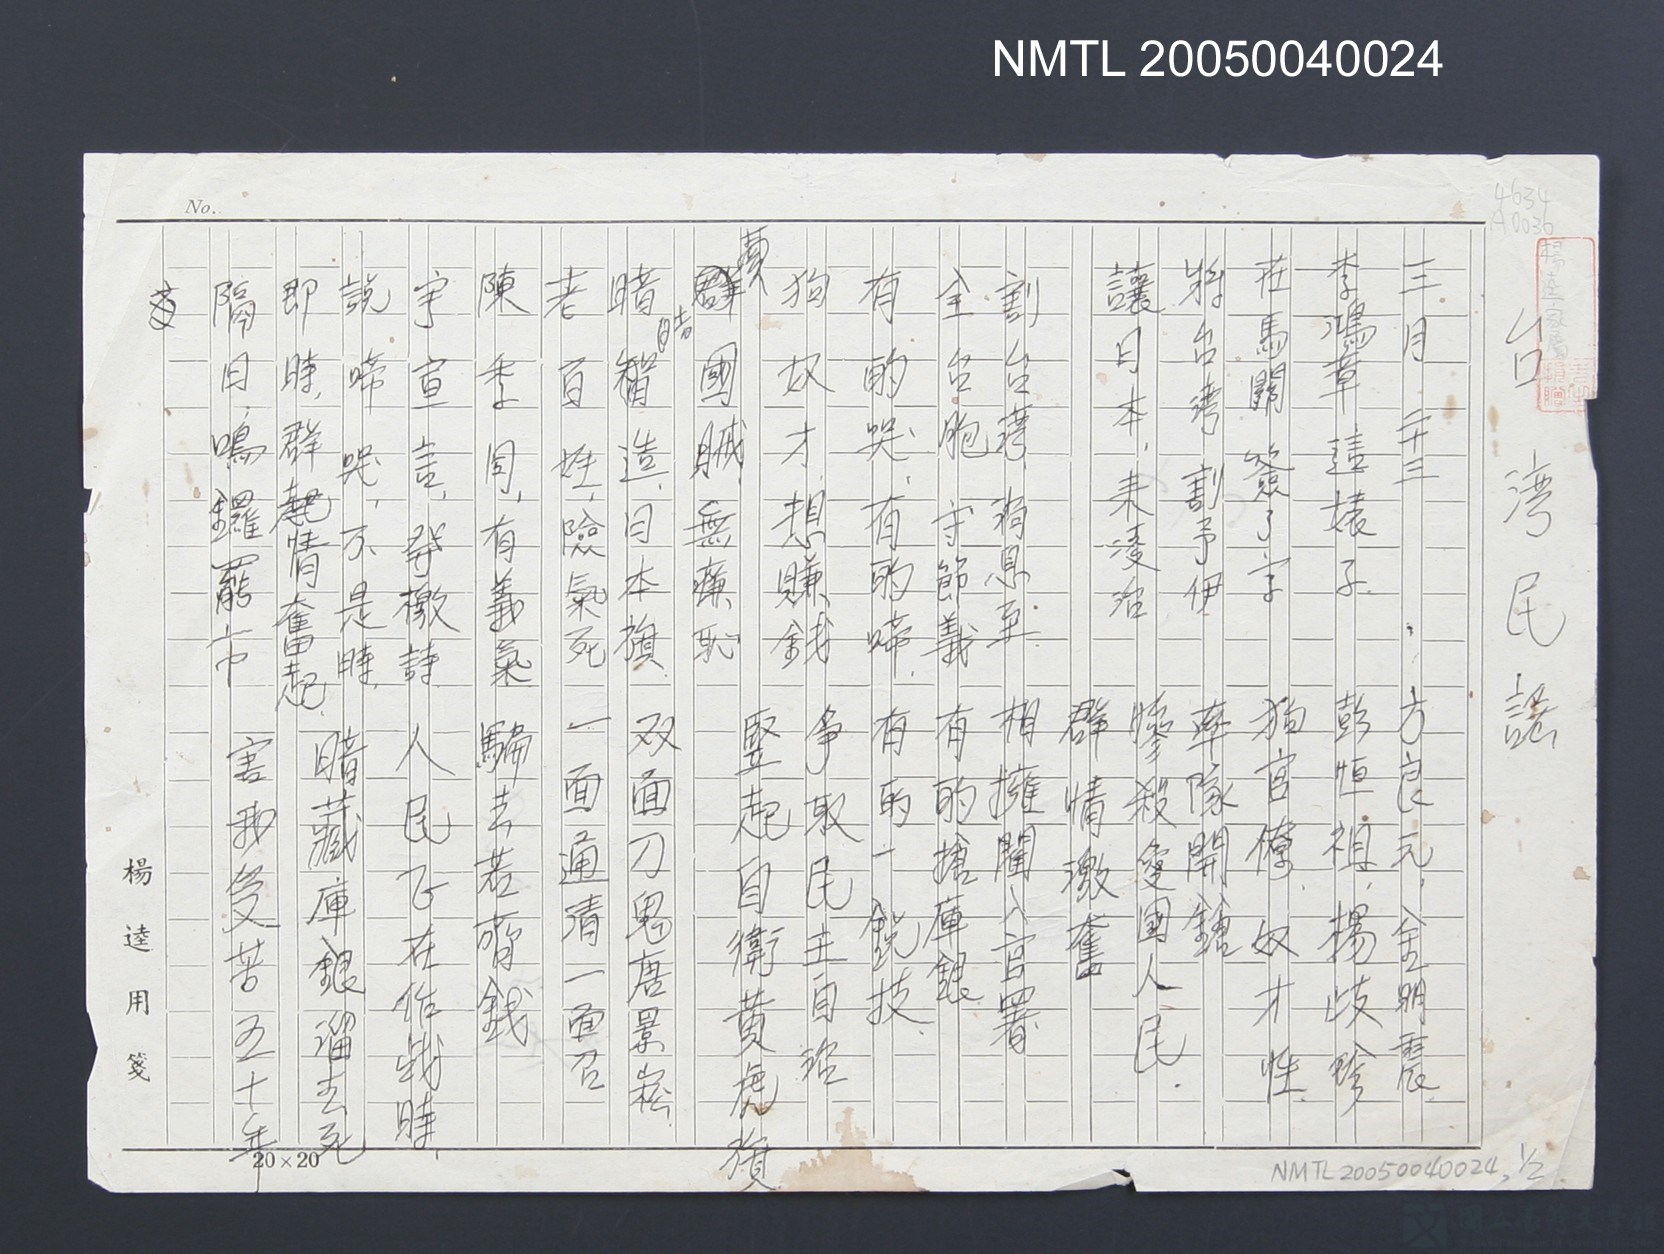 NMTL 20050040024
No.
4634
A0036
台湾民謡
三月二十三
李鴻章這婊子
在馬關簽了字
将台湾割予伊
讓日本,来凌治
割台湾,消息至
全台胞守節義
有的哭,有的啼
狗奴才,想賺錢
賣國賊,無廉恥
暗暗造,日本旗
老百姓,險氣死
陳季同,有義氣
宇宣言,發檄詩
說啼哭,不是時
即時,群起情奮起
隔日,鳴鑼罷市
方良元,金明晨
彭恒祖,楊歧珍
狗官僚,奴才性
率隊開鎗
慘殺愛國人民
群情激奮
相擁闖入官署
有的搶庫銀
有的一銃技
争取民主自治
竪起自衛黄虎旗
双面刀鬼唐景崧
一面通清一面召
騙去若齊錢
人民正在作戰時
暗藏庫銀溜去死
害我受苦五十年
楊逵用箋
20×20
NMTL20050040024, 1/2